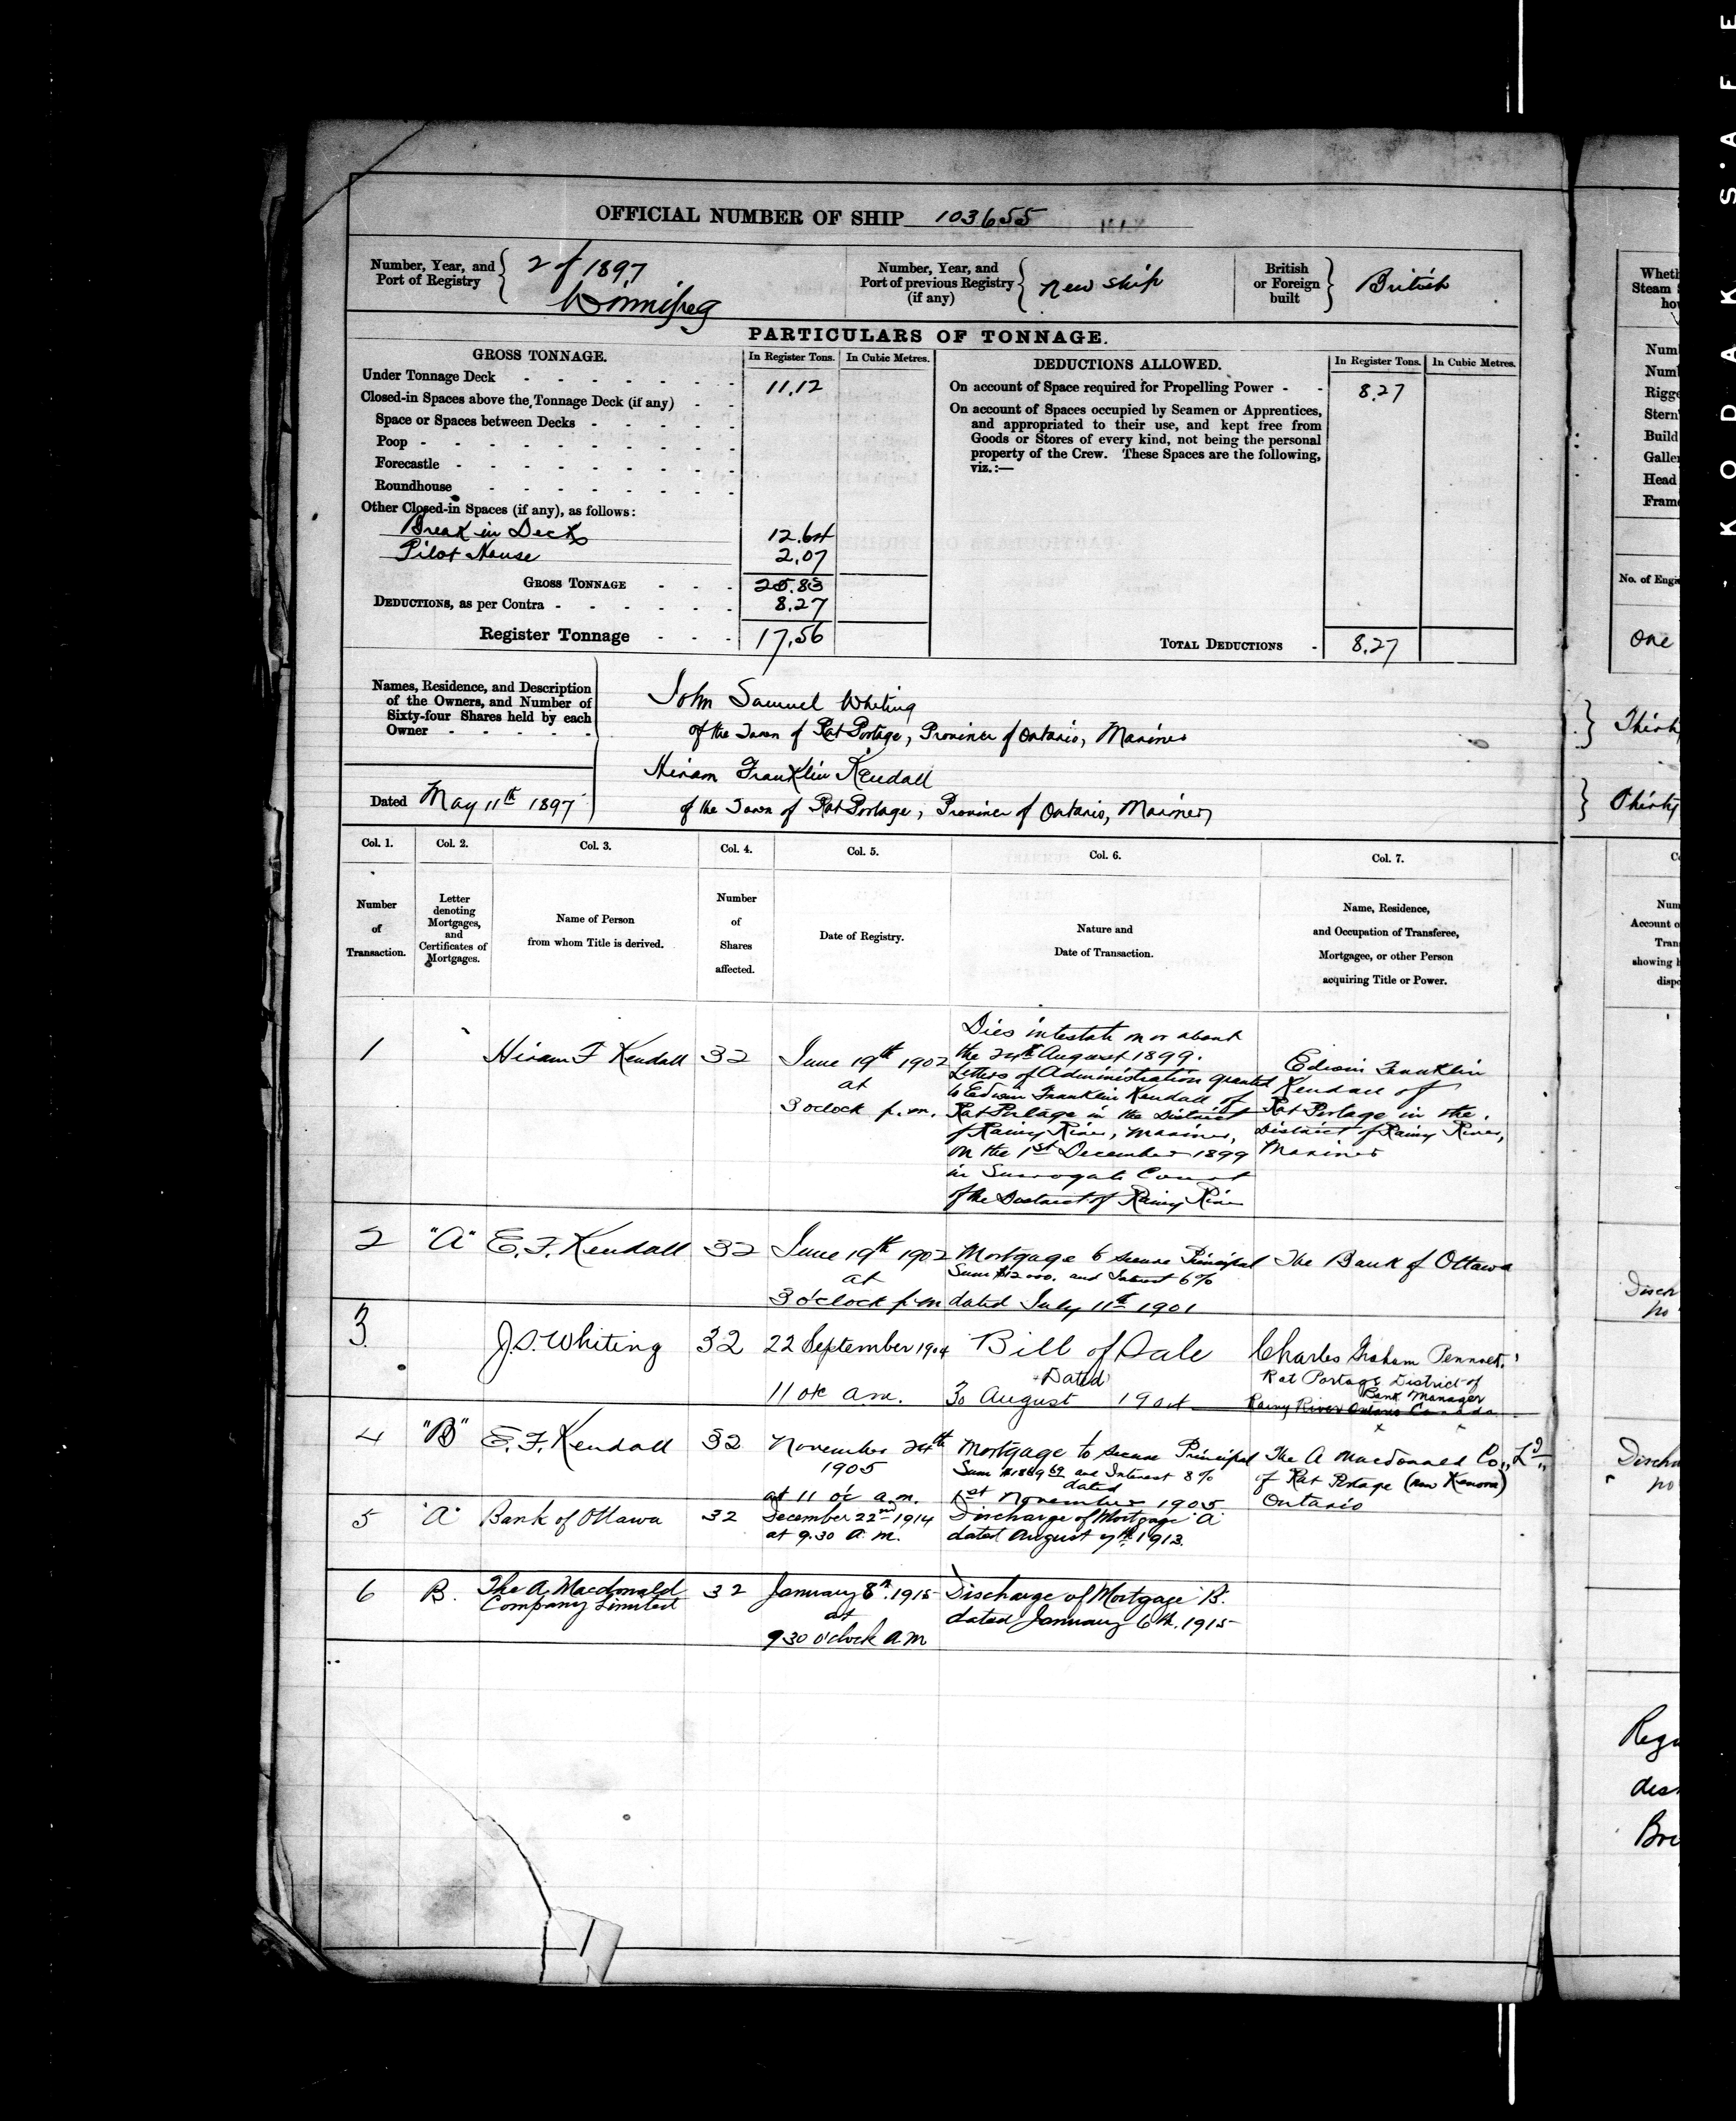 OFFICIAL NUMBER OF SHIP 103655
Number, Year, and Port of Registry 2 of 1897 Winnipeg
Number, Year, and Port of previous Registry (if any) New ship
British or Foreign built British
PARTICULARS OF TONNAGE.
GROSS TONNAGE. In Register Tons. In Cubic Metres.
Under Tonnage Deck - - - - - - - 11.12
Closed-in Spaces above the Tonnage Deck (if any) - -
Space or Spaces between Decks - - - - -
Poop - - - - - - - - - -
Forecastle - - - - - - - - -
Roundhouse - - - - - - - -
Other Closed-in Spaces (if any), as follows:
Break in Deck 12.64
Pilot House 2.07
GROSS TONNAGE - - - 25.83
DEDUCTIONS, as per Contra - - - - - - 8.27
Register Tonnage - - - 17.56
DEDUCTIONS ALLOWED. In Register Tons. In Cubic Metres.
On account of Space required for Propelling Power - - 8.27
On account of Spaces occupied by Seamen or Apprentices,
and appropriated to their use, and kept free from
Goods or Stores of every kind, not being the personal
property of the Crew. These Spaces are the following,
viz.:—
TOTAL DEDUCTIONS - 8.27
Names, Residence, and Description
of the Owners, and Number of
Sixty-four Shares held by each
Owner - - - - - -
Dated May 11th 1897
John Samuel Whiting
of the Town of Rat Portage, Province of Ontario, Mariner
Hiram Franklin Kendall
of the Town of Rat Portage, Province of Ontario, Mariner
Col. 1. Col. 2. Col. 3. Col. 4. Col. 5. Col. 6. Col. 7.
Number of Transaction.
Letter denoting Mortgages, and Certificates of Mortgages.
Name of Person from whom Title is derived.
Number of Shares affected.
Date of Registry.
Nature and Date of Transaction.
Name, Residence, and Occupation of Transferee, Mortgagee, or other Person acquiring Title or Power.
1 Hiram F Kendall 32
June 19th 1902
at
3 oclock p.m.
Dies intestate on or about
the 24th August 1899.
Letters of Administration granted
to Edwin Franklin Kendall of
Rat Portage in the District
of Rainy River, Mariner,
on the 1st December 1899
in Surrogate Court
of the District of Rainy River
Edwin Franklin
Kendall of
Rat Portage in the
District of Rainy River,
Mariner
2 "A" E. F. Kendall 32
June 19th 1902
at
3 o'clock p.m
Mortgage to secure Principal
Sum $12000. and Interest 6%
dated July 11th 1901
The Bank of Ottawa
3. J.S. Whiting 32
22 September 1904
11 o'c a.m.
Bill of Sale
Dated
30 August 1904
Charles Graham Pennock
Rat Portage District of
Bank Manager
Rainy River Ontario Canada
4 "B" E. F. Kendall 32
November 24th
1905
at 11 o'c a.m.
Mortgage to secure Principal
and Interest 8%
dated
1st November 1905
The A Macdonald Co., Ld.,
of Rat Portage (now Kenora)
Ontario
5 "A" Bank of Ottawa 32
December 22nd 1914
at 9.30 a.m.
Discharge of Mortgage A
dated August 7th 1913.
6 B. The A. Macdonald
Company Limited 32
January 8th. 1915
at
9 30 o'clock A M
Discharge of Mortgage B.
dated January 6th. 1915
1
Wheth
Steam
ho
Num
Num
Rigge
Stern
Build
Galle
Head
Fram
No. of Engi
One
Num
Account o
Tran
showing h
disp
Regi
dis
Bri
KODAK S'AFE